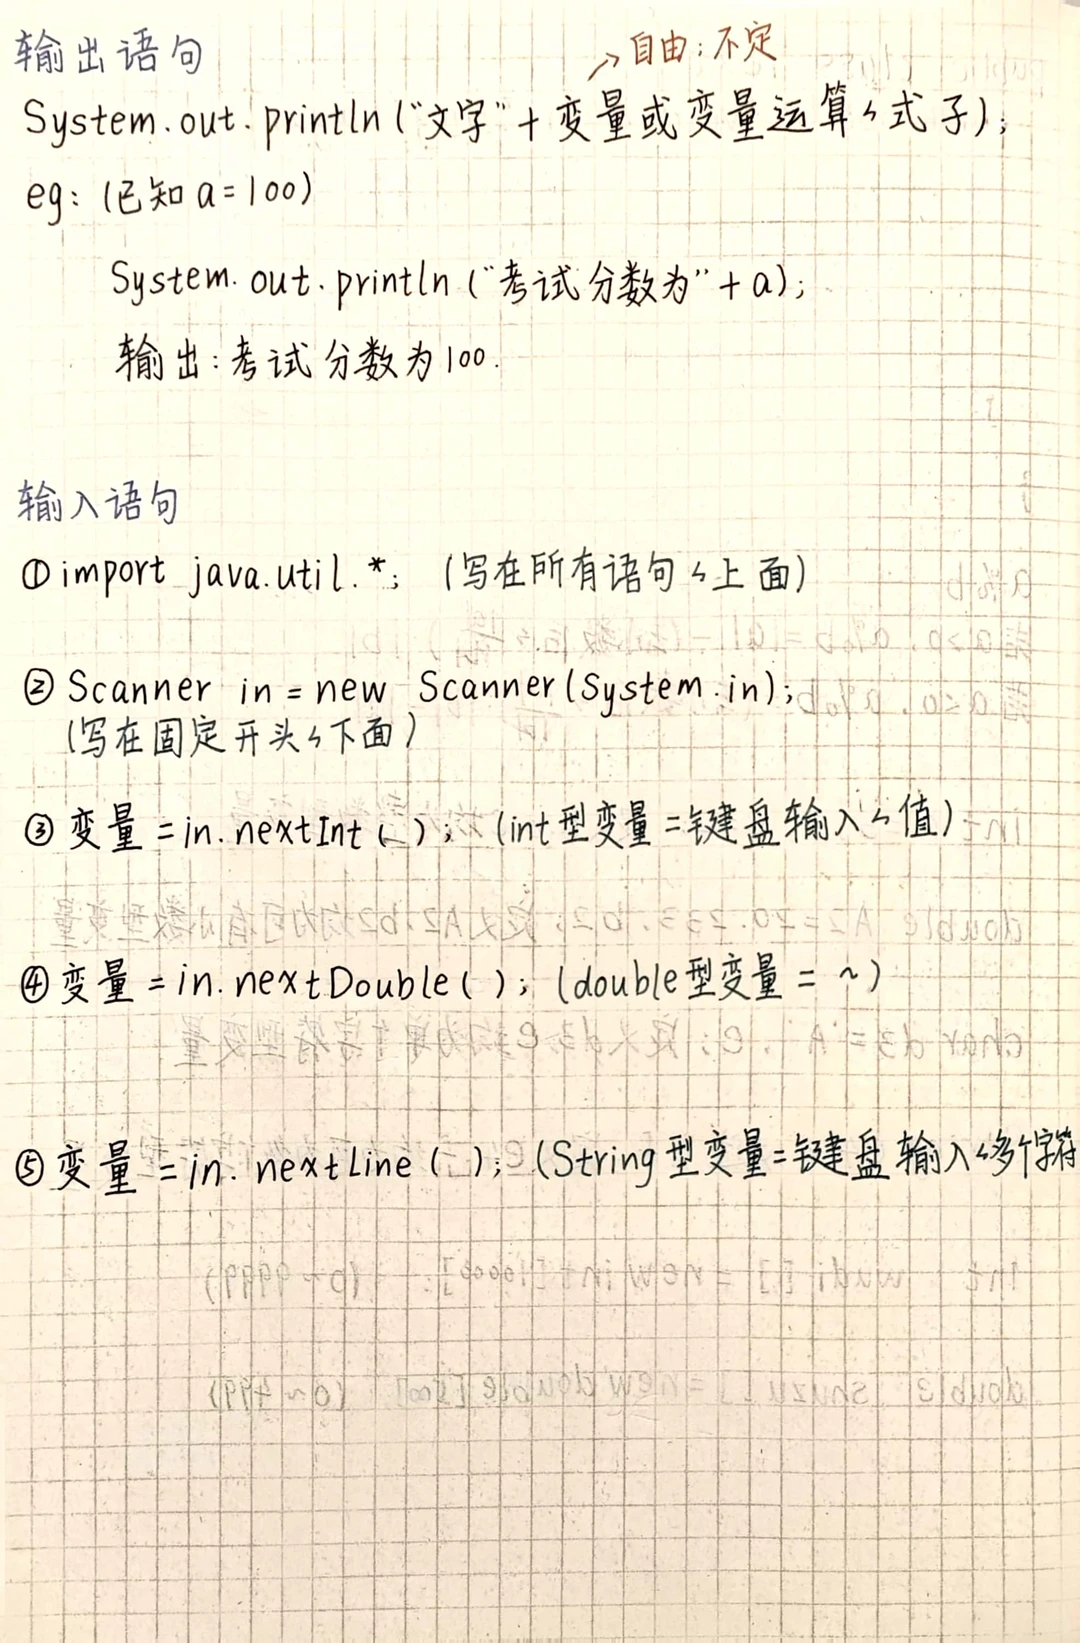 输出语句
→自由:不定
System.out.println("文字"+变量或变量运算ㄣ式子);
eg:(已知a=100)
System.out.println("考试分数为"+a);
输出:考试分数为100.
输入语句
①import java.util.*; (写在所有语句ㄣ上面)
②Scanner in=new Scanner(System.in);
(写在固定开头ㄣ下面)
③变量=in.nextInt( ); (int型变量=键盘输入ㄣ值)
④变量=in.nextDouble( ); (double型变量=~)
⑤变量=in.nextLine( ); (String型变量=键盘输入ㄣ多个字符